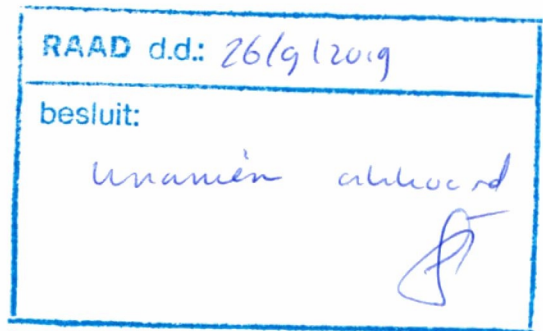 RAAD d.d.: 26/9/2019
besluit:
unaniem akkoord